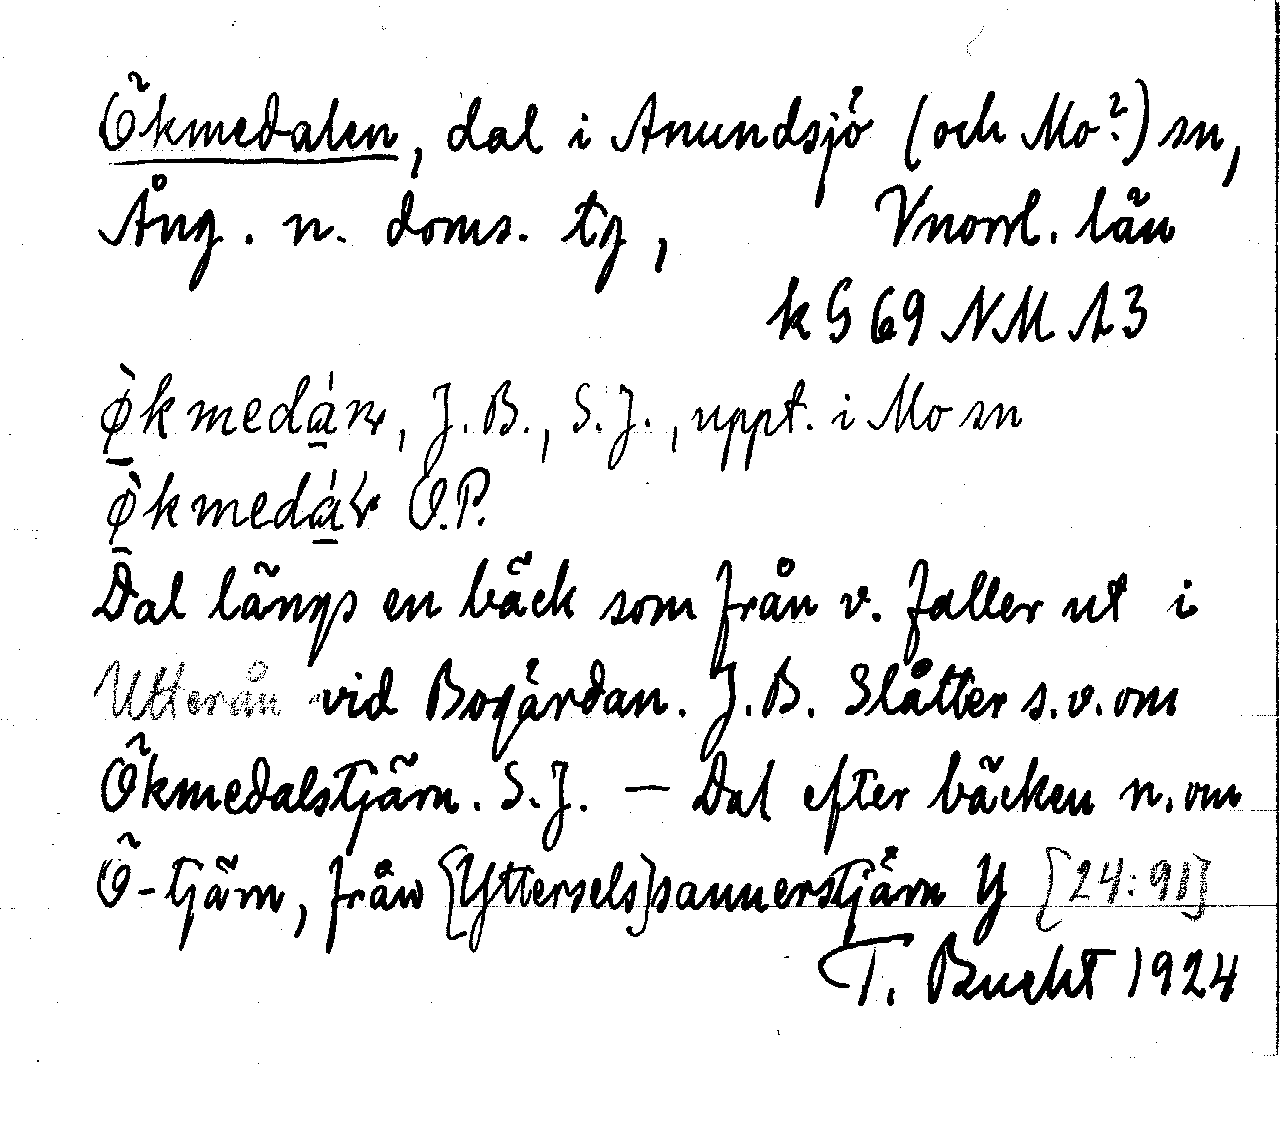 Ökmedalen, dal i Anundsjö (och Mo?) sn,
Ång. n. doms. tg, Vnorrl. län
k G 69 NM A3
J.B., S.J., uppt. i Mo sn
O.P.
Dal längs en bäck som från v. faller ut i
Utterån vid Bogärdan. J.B. Slåtter s.v. om
Ökmedalstjärn. S.J. — Dal efter bäcken n. om
Ö-tjärn, från [Yttersels]sannerstjärn Y [24:91]
T. Bucht 1924